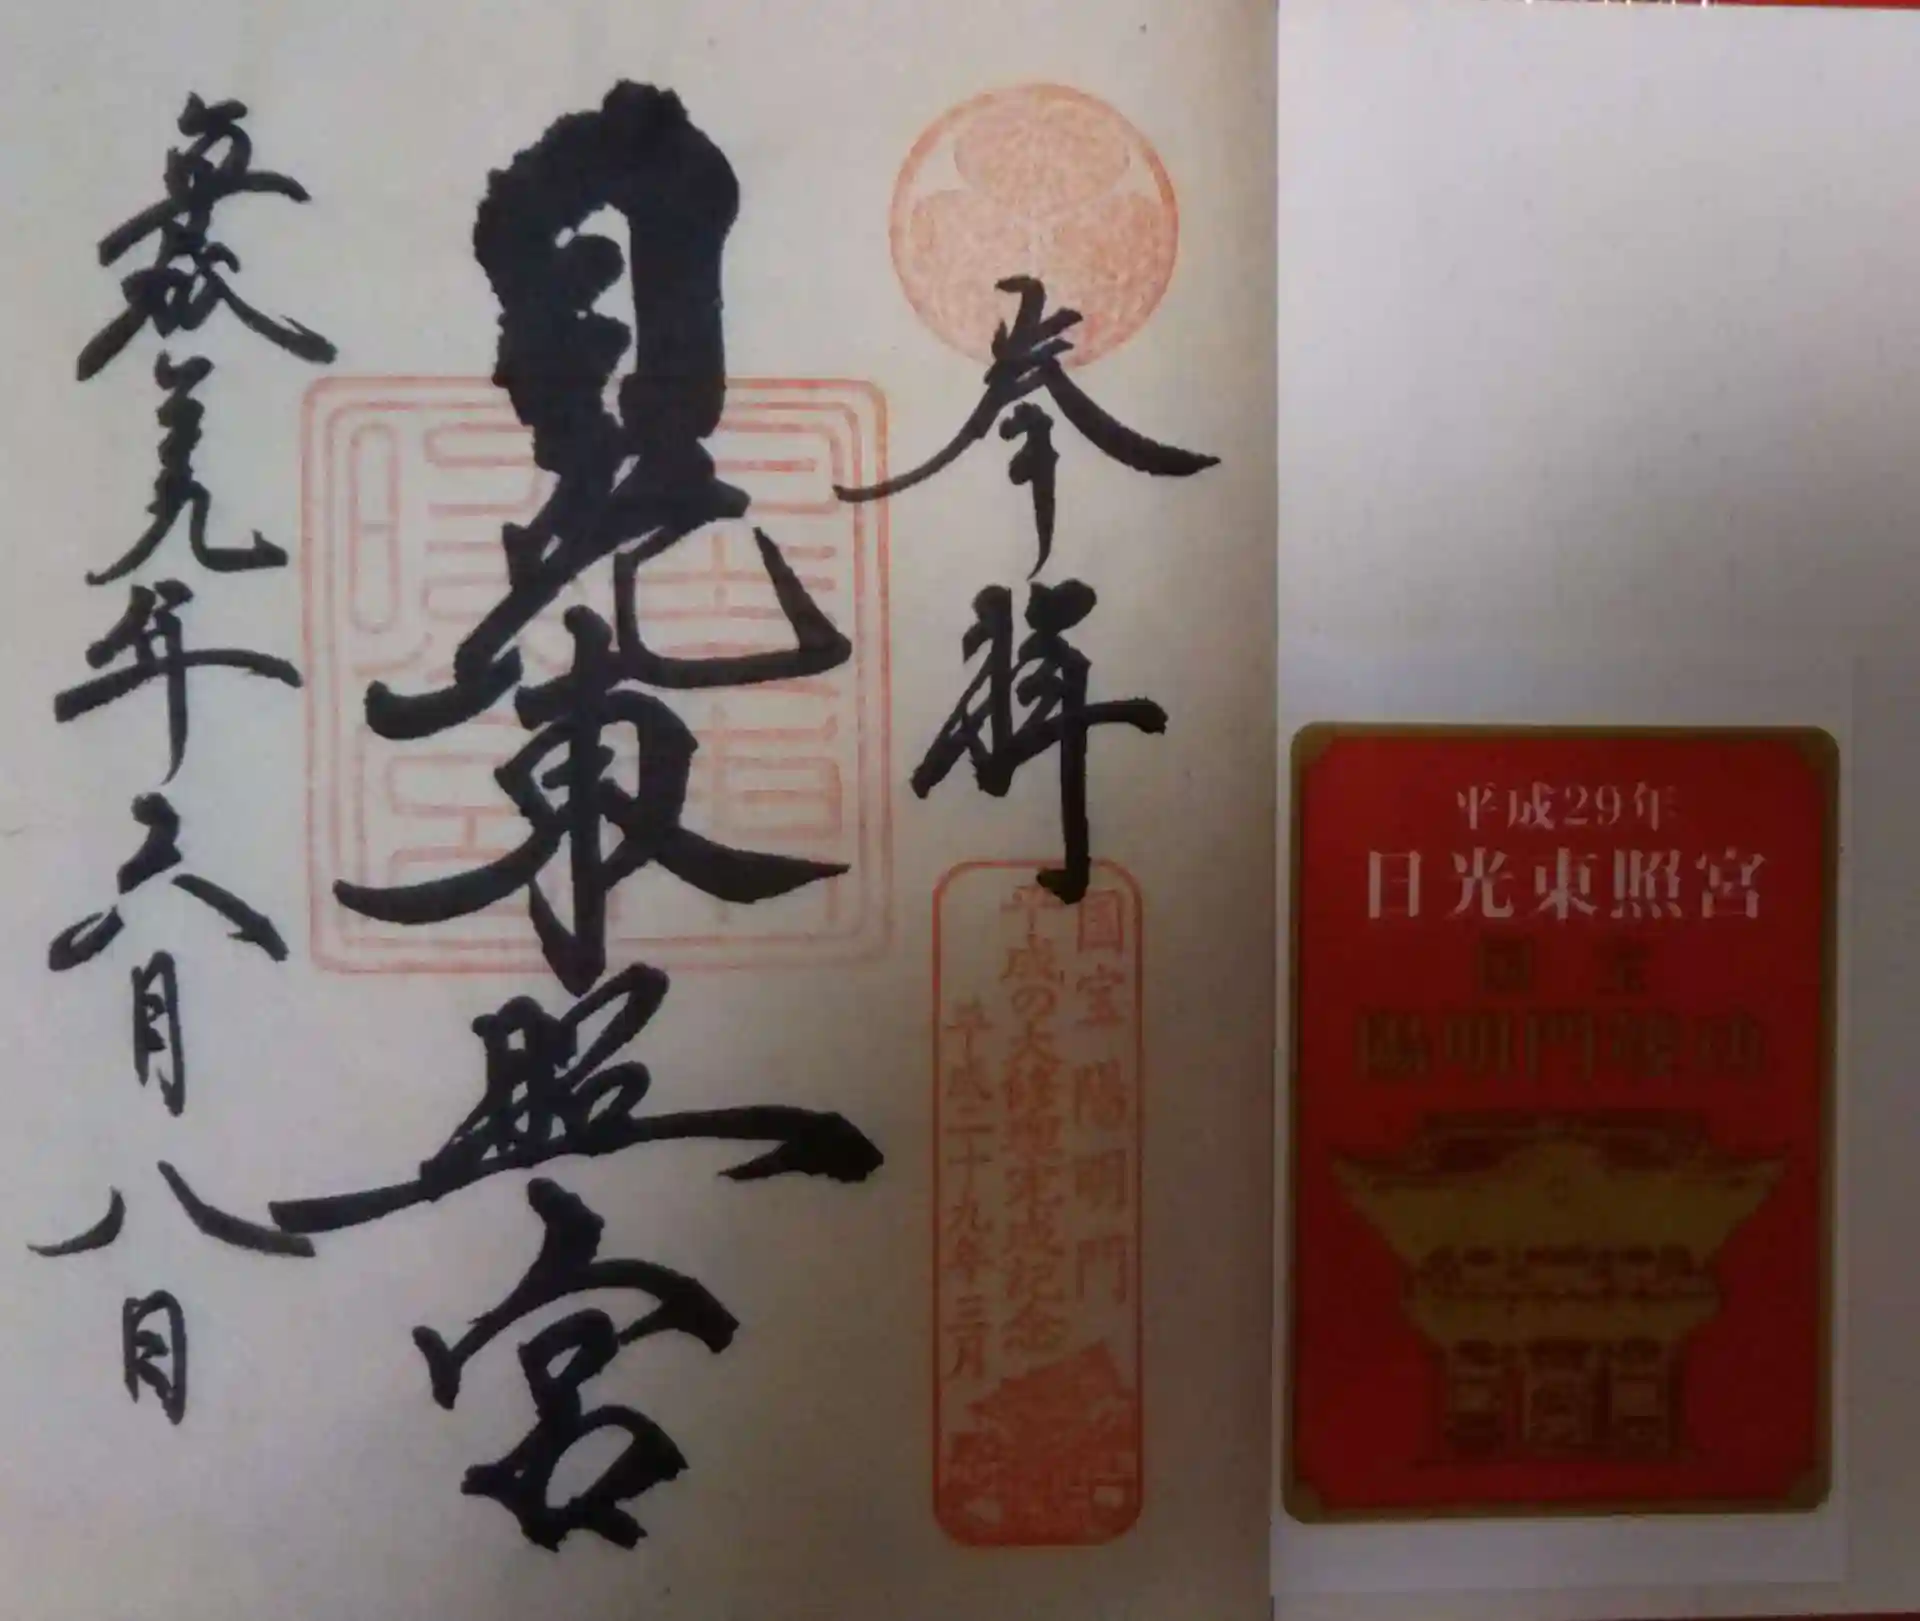 奉拝
国宝陽明門
平成の大修理完成記念
平成二十九年三月
日光東照宮
平成廿九年六月八日
平成29年
日光東照宮
国宝
陽明門竣功